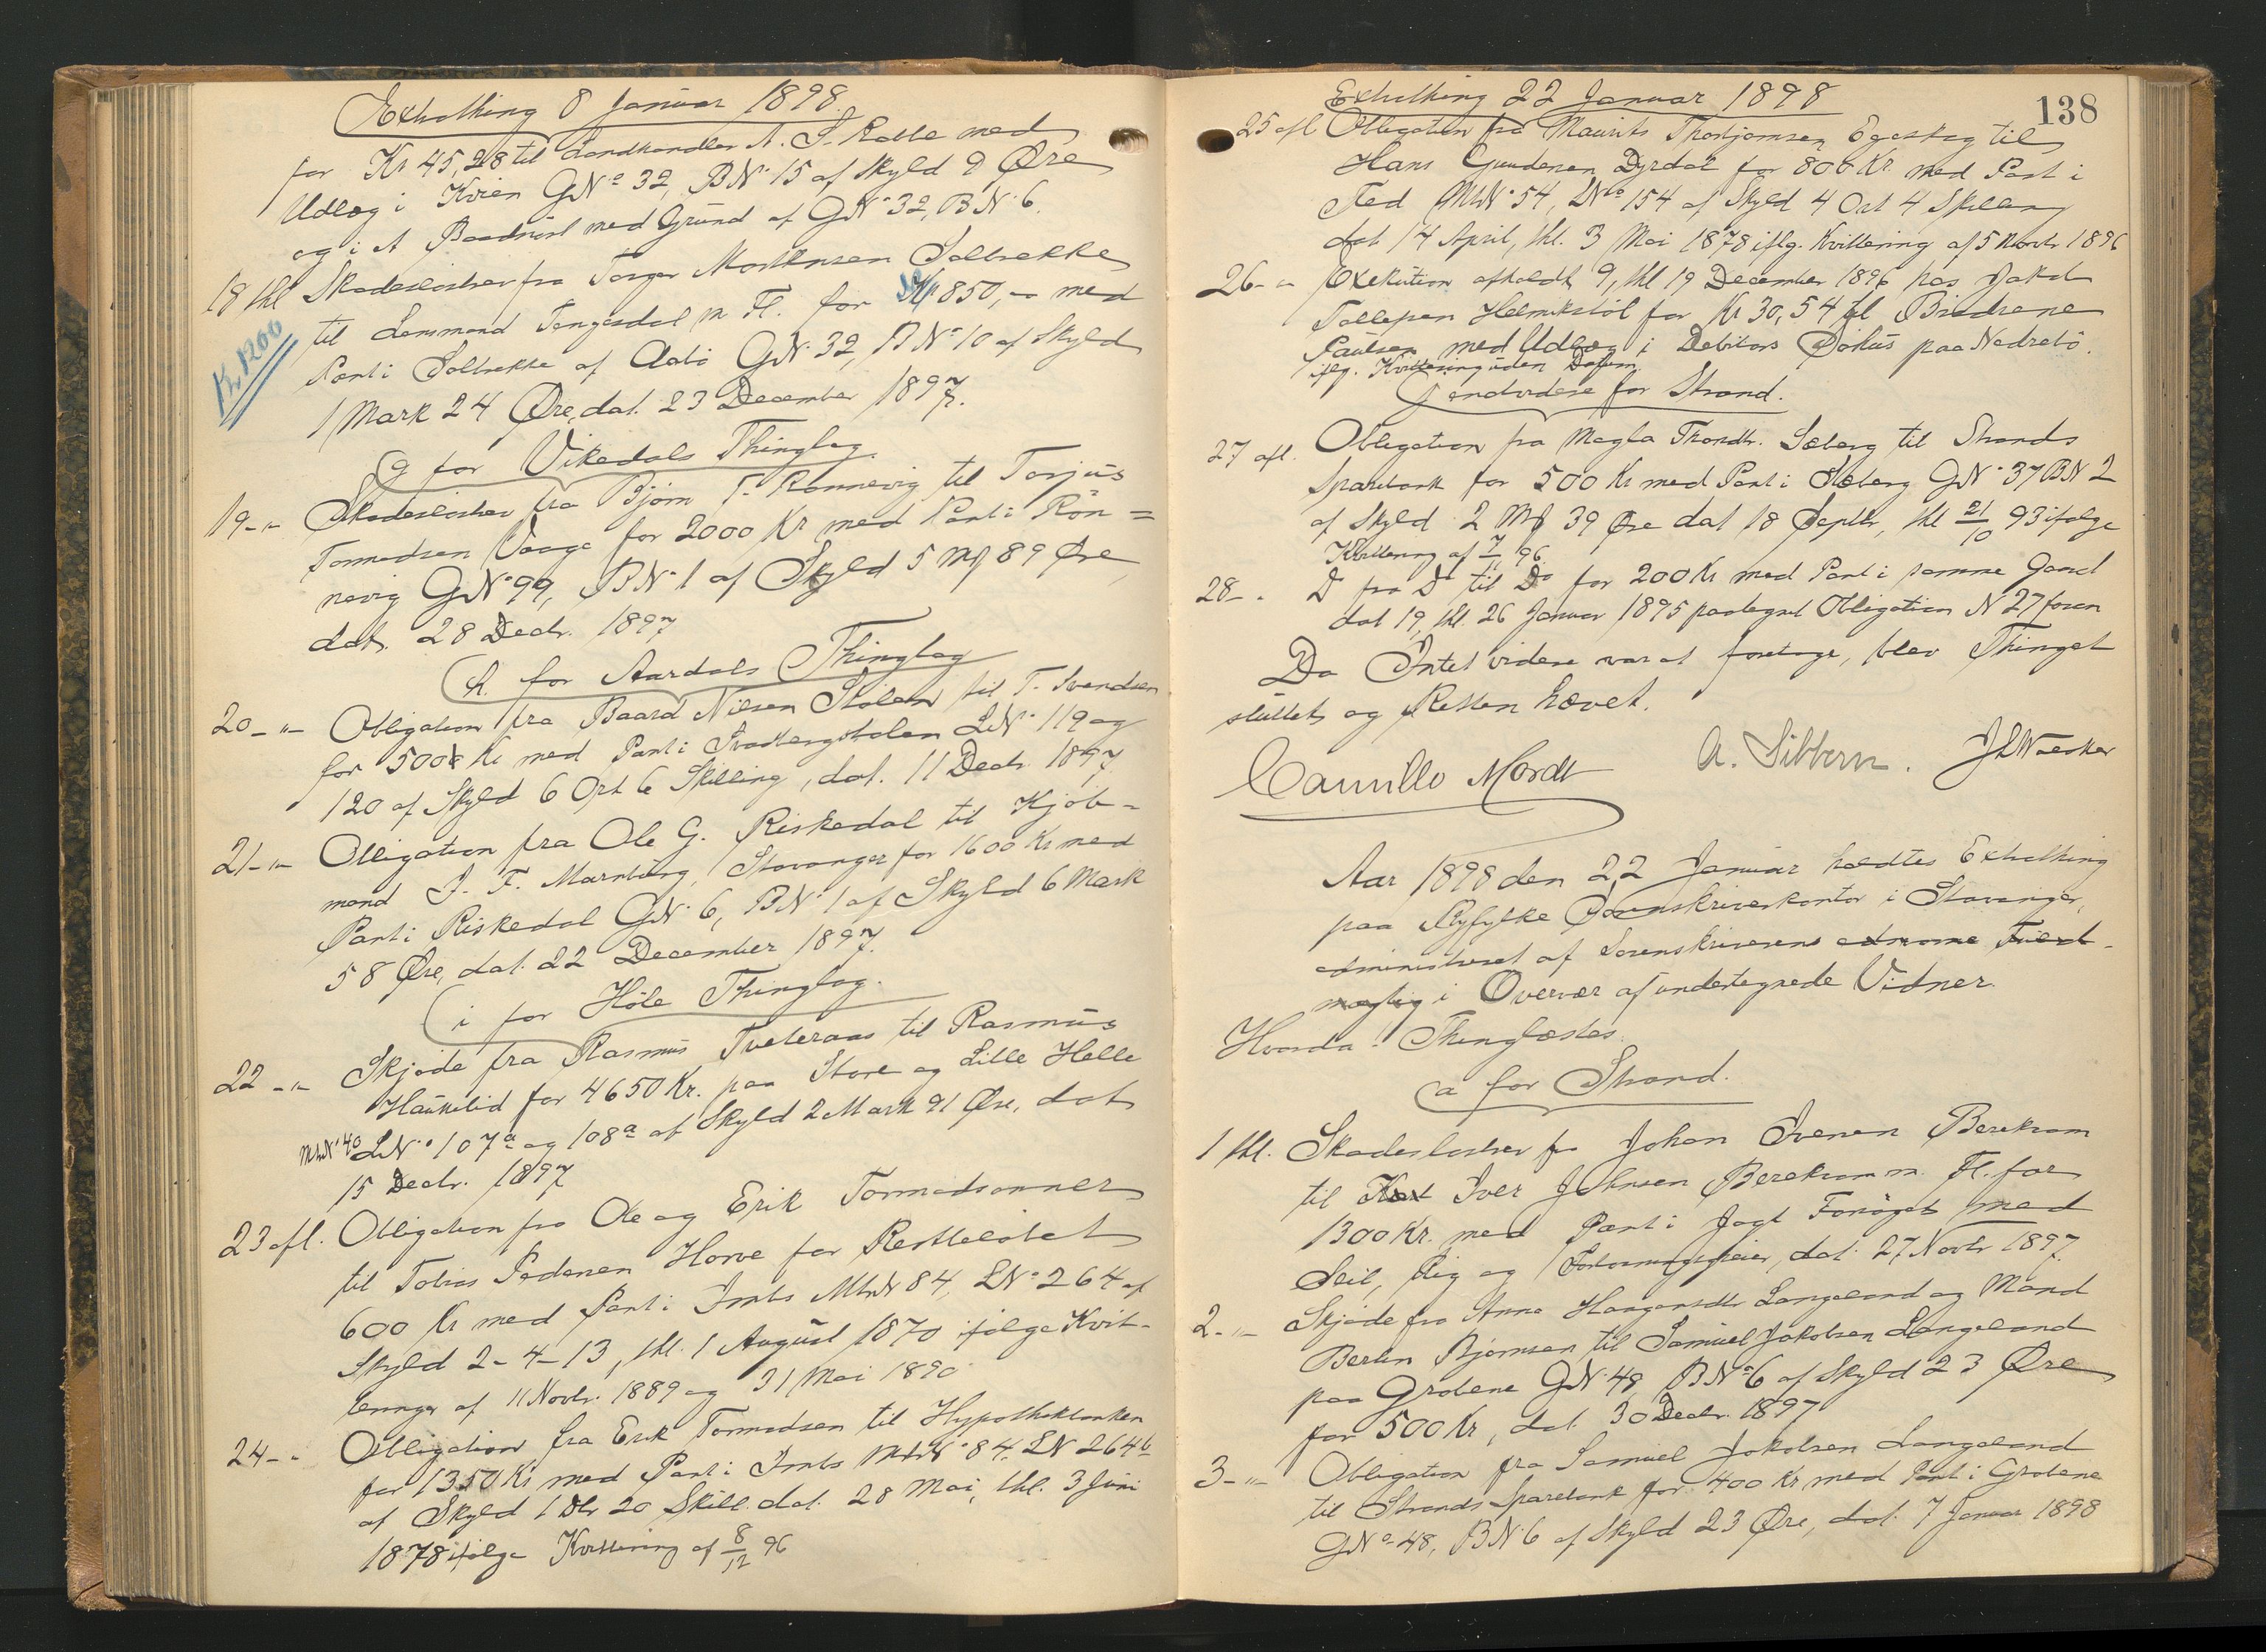 Extrathing 8 Januar 1898.
for Kr 45,28 til Landhandler A. S. Rabbe med
Udlæg i Kvien GNo 32, BN. 15 af Skyld 9 Øre
og i et Baadnøst med Grund af GN. 32, BN. 6.
18 thl Skadesløsbrev fra Torger Mortensen Soltvekke
til Lensmand Tengesdal m Fl. for Kr 850,- med
Kr. 1200
Pant i Soltvekke af Aabø GN. 32, BNo 10 af Skyld
1 Mark 24 Øre, dat. 23 December 1897.
g for Vikedals Thinglag.
19-"- Skadesløsbrev fra Bjørn T. Rønnevig til Torjus
Tormodsen Vaage for 2000 Kr med Pant i Røn=
nevig GNo 99, BN. 1 af Skyld 5 Mk 89 Øre,
dat. 28 Decbr. 1897
h. for Aardals Thinglag
20-"- Obligation fra Baard Nilsen Stølen til T. Svendsen
for 500 Kr med Pant i Svadbergstølen LN. 119 og
120 af Skyld 6 Ort 6 Skilling, dat. 11 Decbr. 1897.
21-"- Obligation fra Ole G. Riskedal til Kjøb-
mand J. F. Marnburg, Stavanger for 1600 Kr med
Pant i Riskedal GN. 6, BN. 1 af Skyld 6 Mark
58 Øre, dat. 22 December 1897.
i for Høle Thinglag.
22-"- Skjøde fra Rasmus Tveteraas til Rasmus
Haukelid for 4650 Kr. paa Store og Lille Helle
MtrN. 40 LN. 107a og 108a af Skyld 2 Mark 91 Øre, dat
15 Decbr. 1897
23 afl. Obligation fra Ole og Erik Tormodsønner
til Tobias Pedersen Horve for Restbeløbet
600 Kr med Pant i Ims MtrN 84, LNo 264 af
Skyld 2-4-13, thl. 1 August 1870 ifølge Kvit-
teringer af 11 Novbr. 1889 og 31 Mai 1890
24-"- Obligation fra Erik Tormodsen til Hypothekbanken
for 1350 Kr med Pant i Ims MtrN. 84, LN 264b
af Skyld 1 Dlr 20 Skill. dat. 28 Mai, thl. 3 Juni
1878 ifølge Kvittering af 8/12 96
Extrathing 22 Januar 1898
138
25 afl Obligation fra Maurits Thorbjørnsen Egeskog til
Hans Gundersen Dyrdal for 800 Kr. med Pant i
Fed MtrN. 54, LNo 154 af Skyld 4 Ort 4 Skilling
dat 14 April, thl. 3 Mai 1878 iflg. Kvittering af 5 Novbr 1896
26-"- Exekution afholdt 9, thl 19 December 1896 hos Jakob
Tollefsen Helmikstøl for Kr 30,54 til Brødrene
Paulsen med Udlæg i Debitors Søhus paa Nedrebø.
iflg. Kvittering uden Datum.
J endvidere for Strand.
27 afl. Obligation fra Magla Thordtr. Soberg til Strands
Sparebank for 500 Kr med Pant i Soberg GN. 37 BN 2
af Skyld 2 Mk 39 Øre dat 18 Septbr, thl 21/10 93 ifølge
Kvittering af 7/1 96
28-. Do fra Do til Do for 200 Kr med Pant i samme Gaard
dat 19, thl. 26 Januar 1895 paategnet Obligation N 27 foran
Da Intet videre var at foretage, blev Thinget
sluttet og Retten hævet.
Camillo Mordt A. Sibbern. J L Wæsker
Aar 1898 den 22 Januar holdtes Extrathing
paa Ryfylke Sorenskriverkontor i Stavanger,
administreret af Sorenskriverens edsvorne Fuld-
mægtig i Overvær af undertegnede Vidner.
Hvorda: Thinglæstes.
a for Strand.
1 thl. Skadesløsbrev fra Johan Iversen Berekvam
til Iver Johnsen Berekvam m. Fl. for
1300 Kr. med Pant i Jagt Forsøget med
Seil, Rig og dat. 27 Novbr 1897.
2-"- Skjøde fra Anna Haagensdtr Langeland og Mand
Berten Bjørnsen til Samuel Jakobsen Langeland
paa Grotene GN. 48 BNo 6 af Skyld 23 Øre
for 500 Kr, dat 30 Decbr. 1897
3-"- Obligation fra Samuel Jakobsen Langeland
til Strands Sparebank for 400 Kr med Pant i Grotene
GNo 48, BN. 6 af Skyld 23 Øre, dat. 7 Januar 1898